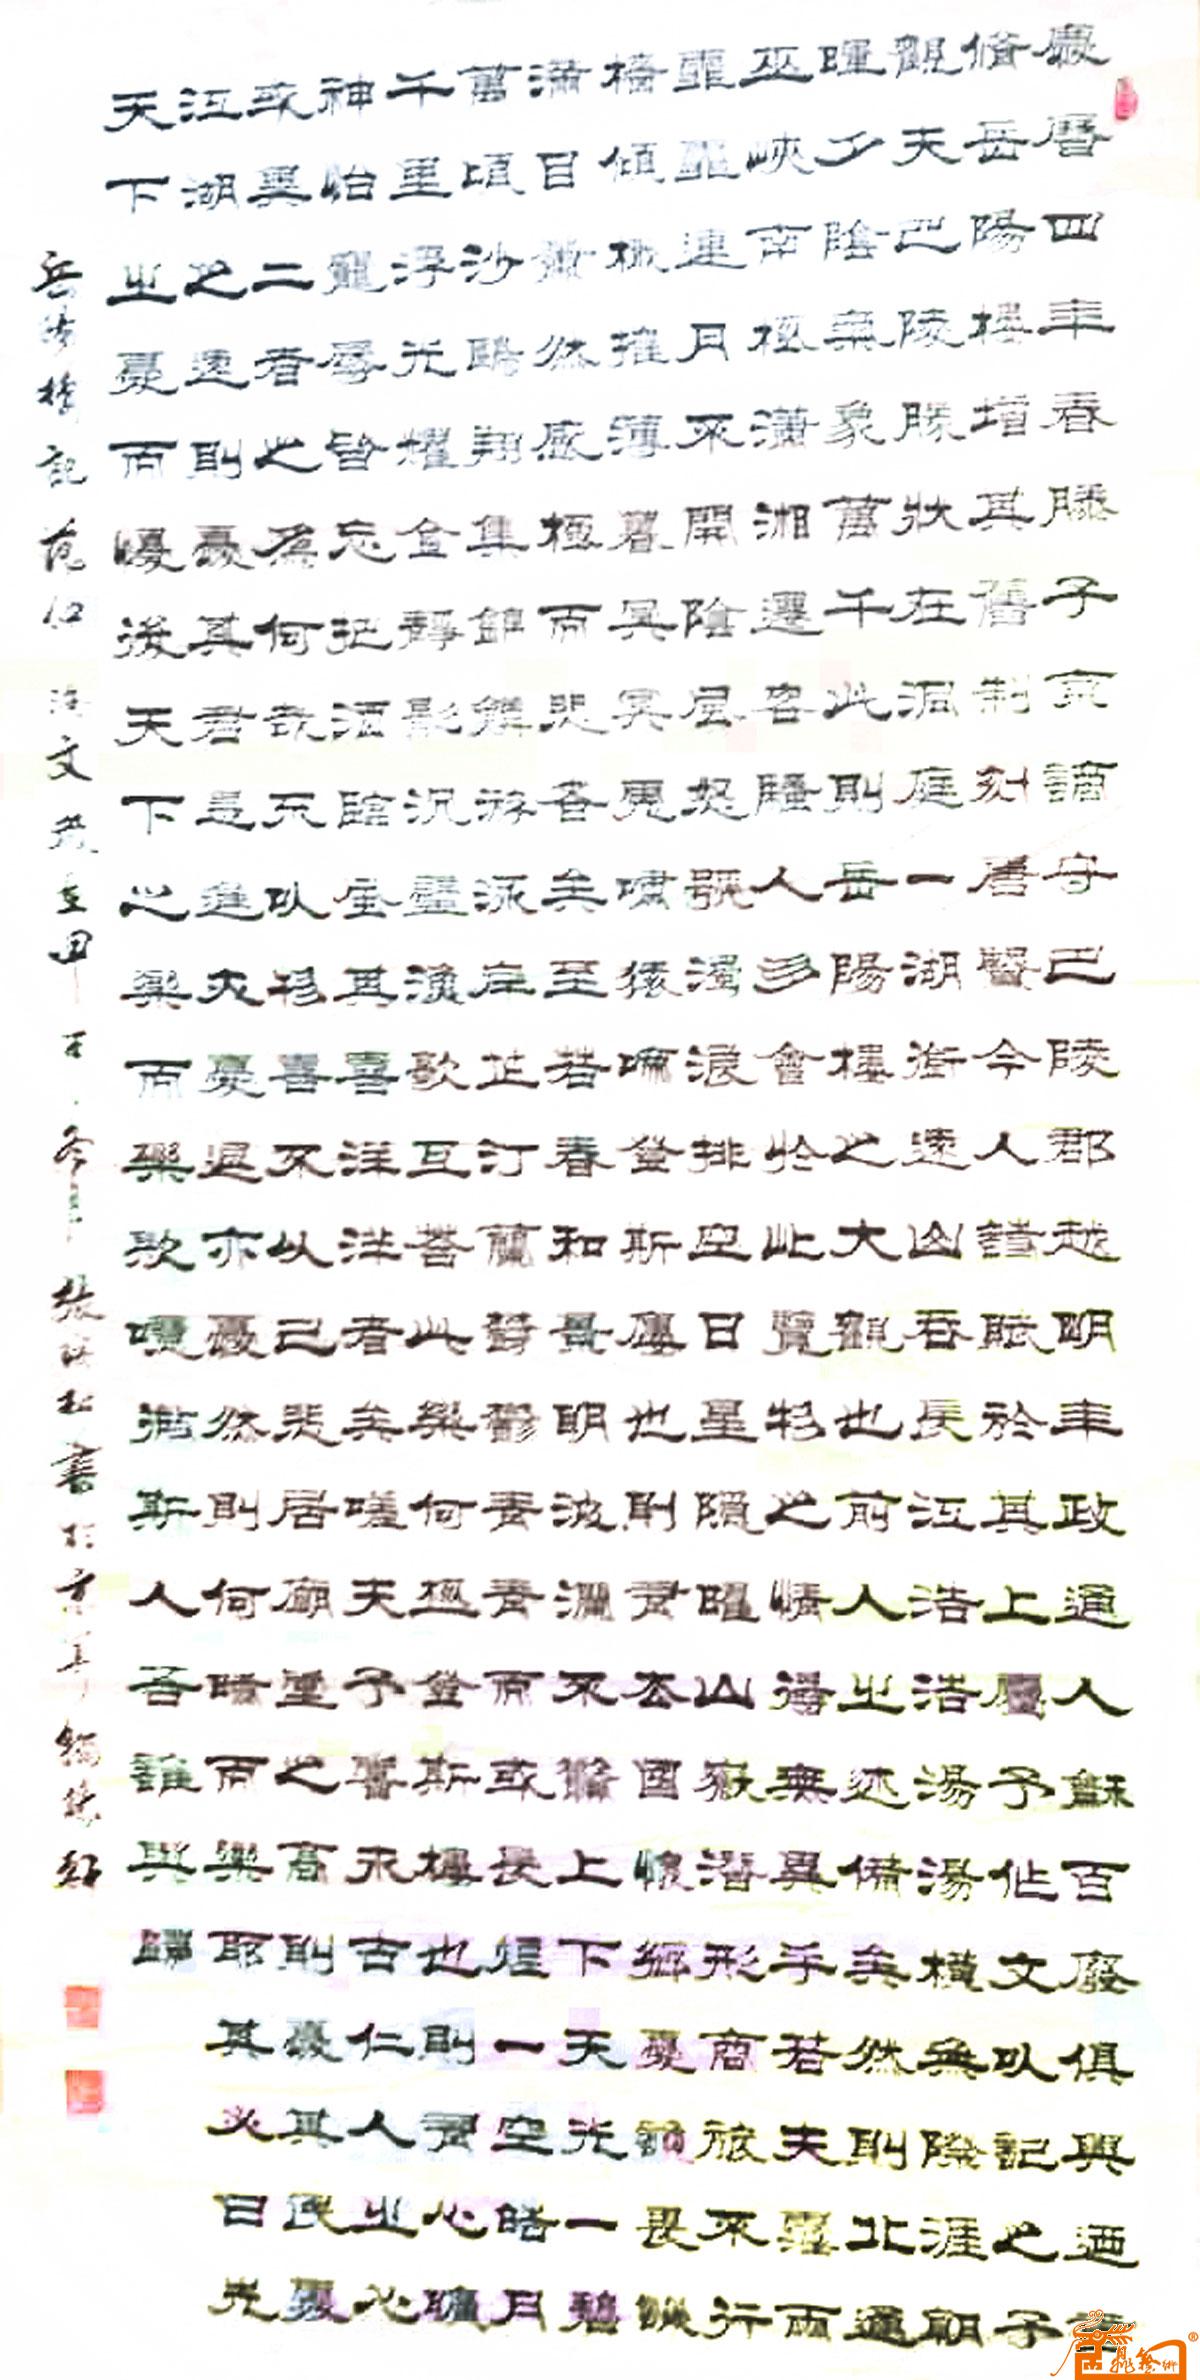 慶曆四年春滕子京謫守巴陵郡越明年政通人龢百廢俱興迺重
脩岳陽樓增其舊制刻唐賢今人詩賦於其上屬予作文以記之予
觀夫巴陵勝狀在洞庭一湖銜遠山吞長江浩浩湯湯橫無際涯朝
暉夕陰氣象萬千此則岳陽樓之大觀也前人之述備矣然則北通
巫峽南極瀟湘遷客騷人多會於此覽物之情得無異乎若夫霪雨
霏霏連月不開陰風怒號濁浪排空日星隱曜山嶽潛形商旅不行
檣傾楫摧薄暮冥冥虎嘯猿啼登斯樓也則有去國懷鄉憂讒畏譏
滿目蕭然感極而悲者矣至若春和景明波瀾不驚上下天光一碧
萬頃沙鷗翔集錦鱗游泳岸芷汀蘭鬱鬱青青而或長煙一空皓月
千里浮光耀金靜影沉璧漁歌互答此樂何極登斯樓也則有心曠
神怡寵辱皆忘把酒臨風其喜洋洋者矣嗟夫予嘗求古仁人之心
或異二者之為何哉不以物喜不以己悲居廟堂之高則憂其民處
江湖之遠則憂其君是進亦憂退亦憂然則何時而樂耶其必曰先
天下之憂而憂後天下之樂而樂歟噫微斯人吾誰與歸
岳陽樓記范仲淹文歲在甲午年冬月張松書於京華軒